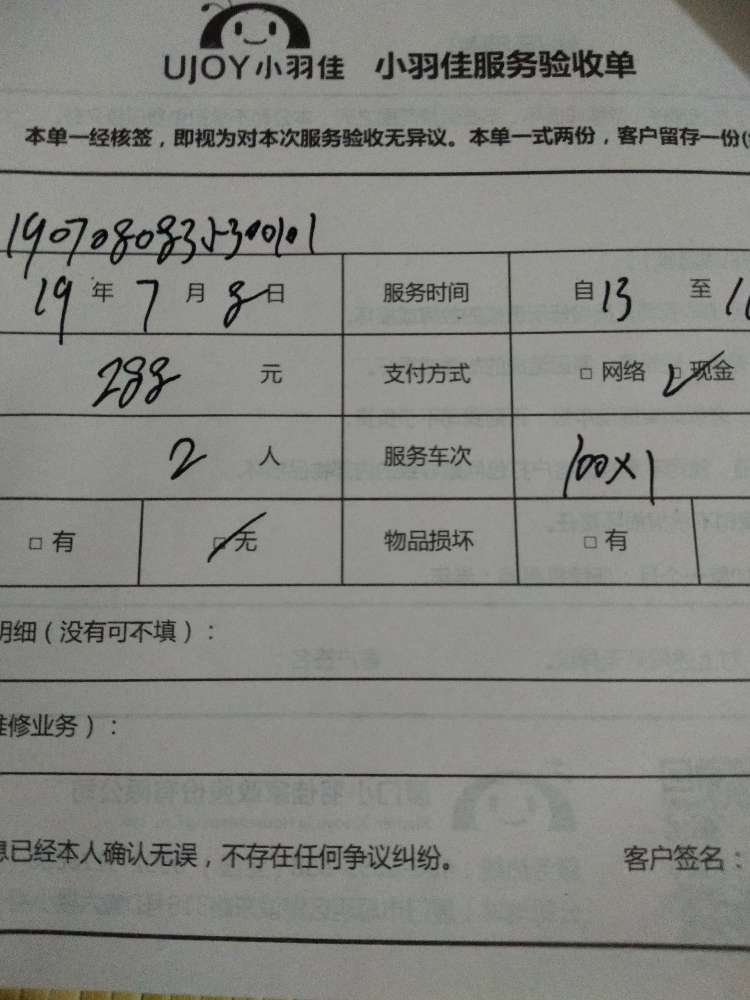 UJOY小羽佳 小羽佳服务验收单
本单一经核签，即视为对本次服务验收无异议。本单一式两份，客户留存一份
19年7月8日 服务时间 自13 至
288元 支付方式 □ 网络 ☑ 现金
2人 服务车次 100×1
□ 有 ☑ 无 物品损坏 □ 有
明细（没有可不填）：
维修业务）：
息已经本人确认无误，不存在任何争议纠纷。 客户签名：